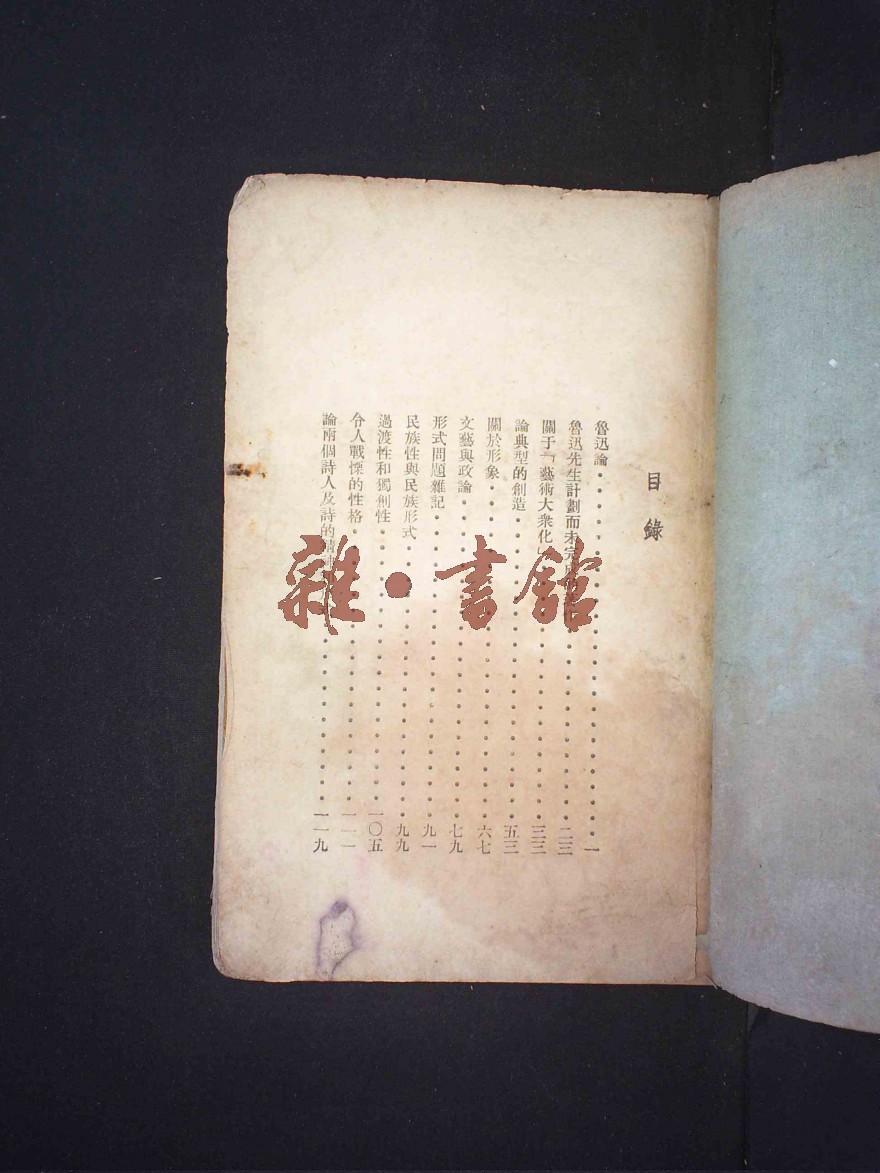 目錄
魯迅論・・・・・・・・・・・・・・・一
魯迅先生計劃而未完成・・・・・・・・・二三
關于「藝術大衆化」・・・・・・・・・・三三
論典型的創造・・・・・・・・・・・・五三
關於形象・・・・・・・・・・・・・・六七
文藝與政論・・・・・・・・・・・・・七九
形式問題雜記・・・・・・・・・・・・九一
民族性與民族形式・・・・・・・・・・九九
過渡性和獨創性・・・・・・・・・・・一〇五
令人戰慄的性格・・・・・・・・・・・一一一
論兩個詩人及詩的精神・・・・・・・・一一九
雜・書館